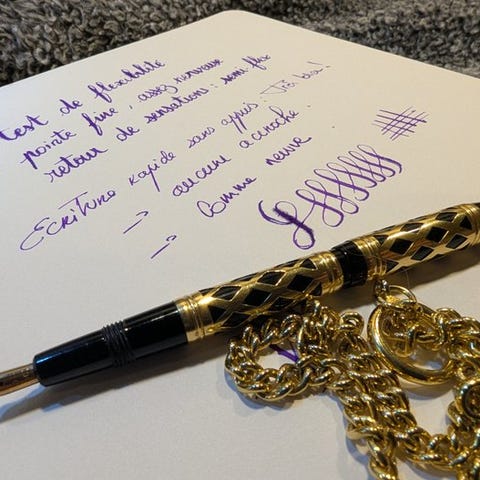 test de flexibilité
pointe fine, assez nerveux
retour de sensations : semi flex
Ecriture rapide sans appui : Très bon !
→ aucune accroche.
→ Comme neuve